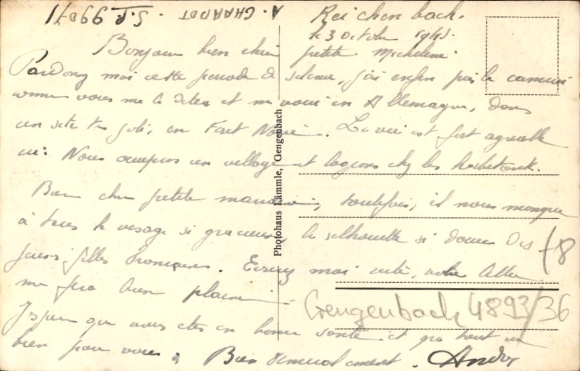 A. CHARDOT S.P. 99071
Reichenbach.
le 3 octobre 1945.
Bonjour bien chère petite Micheline
Pardonnez moi cette période de silence, j'ai enfin pris le
comme vous me le dites et me voici en Allemagne, dans
un site très joli, en Forêt Noire. La vie est fort agréable
ici. Nous occupons un village et logeons chez les habitants.
Bien chère petite marraine, toutefois, il nous manque
à tous le visage si gracieux, la silhouette si douce des
jeunes filles françaises. Ecrivez moi vite, votre lettre
me fera bien plaisir.
J'espère que vous êtes en bonne santé et que tout va
bien pour vous. Bien amicalement. André
Photohaus Lämmle, Gengenbach
f8
Gengenbach 4893/36